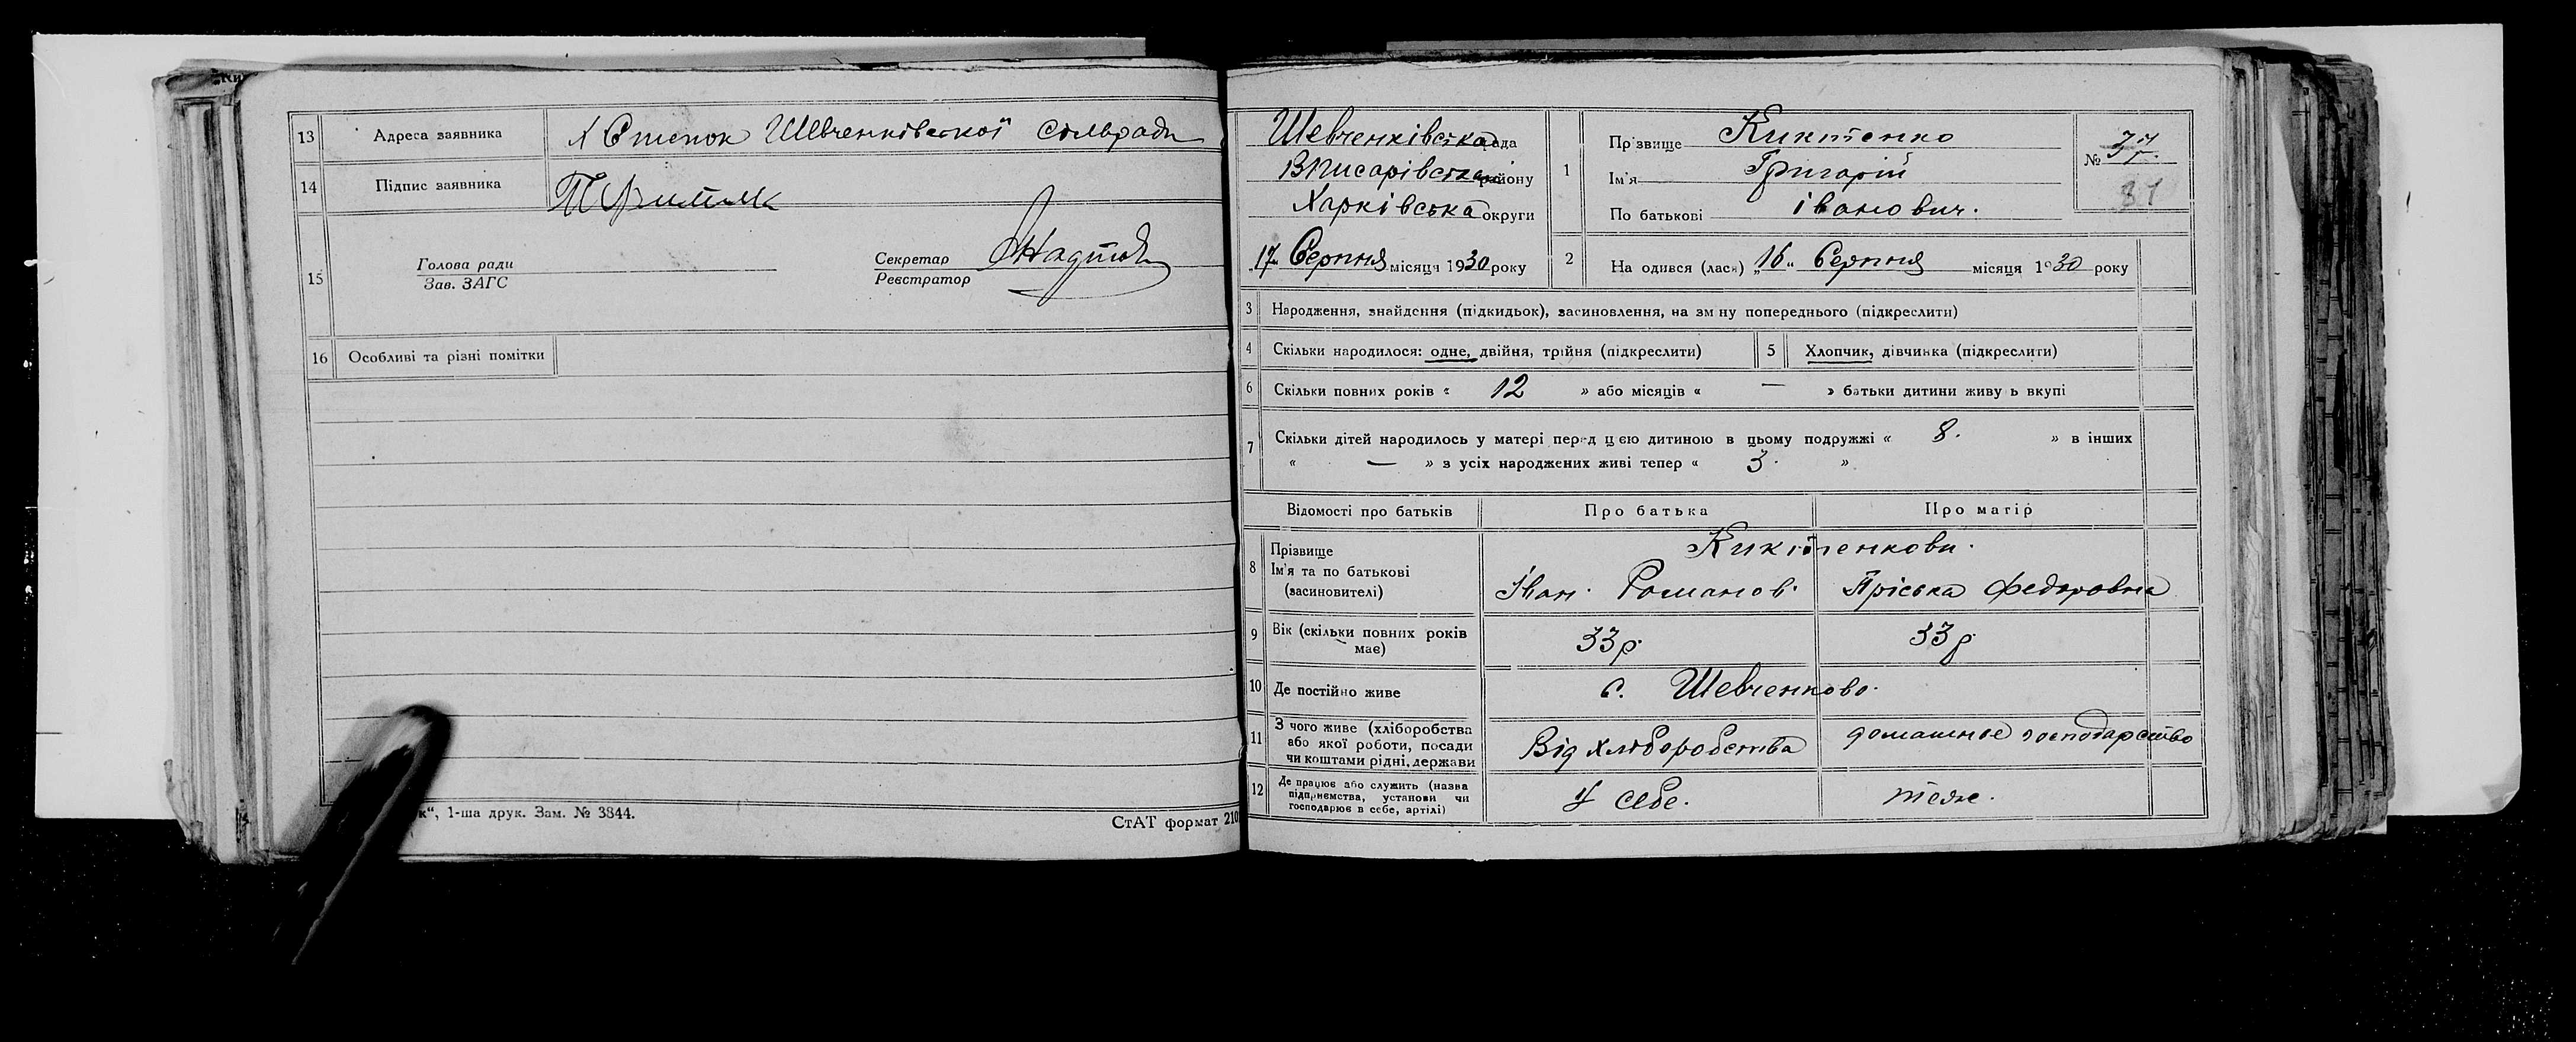 13 Адреса заявника х Степок Шевченківської сільради
14 Підпис заявника
15 Голова ради
Зав. ЗАГС
Секретар
Реєстратор
16 Особливі та різні помітки
к“, 1-ша друк. Зам. № 3844.
СтАТ формат 210
Шевченківська рада
Вписарівська району
Харківська округи
„17“ Серпня місяця 1930 року
1 Прізвище Кикитенко
Ім'я Григорій
По батькові Іванович.
№ 37
31
2 Народився (лася) „16“ Серпня місяця 1930 року
3 Народження, знайдення (підкидьок), засиновлення, на зміну попереднього (підкреслити)
4 Скільки народилося: одне, двійня, трійня (підкреслити)
5 Хлопчик, дівчинка (підкреслити)
6 Скільки повних років « 12 » або місяців « — » батьки дитини живуть вкупі
7 Скільки дітей народилось у матері перед цією дитиною в цьому подружжі « 8. » в інших
« — » з усіх народжених живі тепер « 3. »
Відомості про батьків Про батька Про матір
8 Прізвище
Ім'я та по батькові
(засиновителі)
Кикітенкови.
Іван. Романов. Пріська Федоровна
9 Вік (скільки повних років має) 33р. 33р
10 Де постійно живе с. Шевченково.
11 З чого живе (хліборобства
або якої роботи, посади
чи коштами рідні, держави
Від хліборобства домашнее господарство
12 Де працює або служить (назва
підприємства, установи чи
господарює в себе, артілі)
У себе. теж.